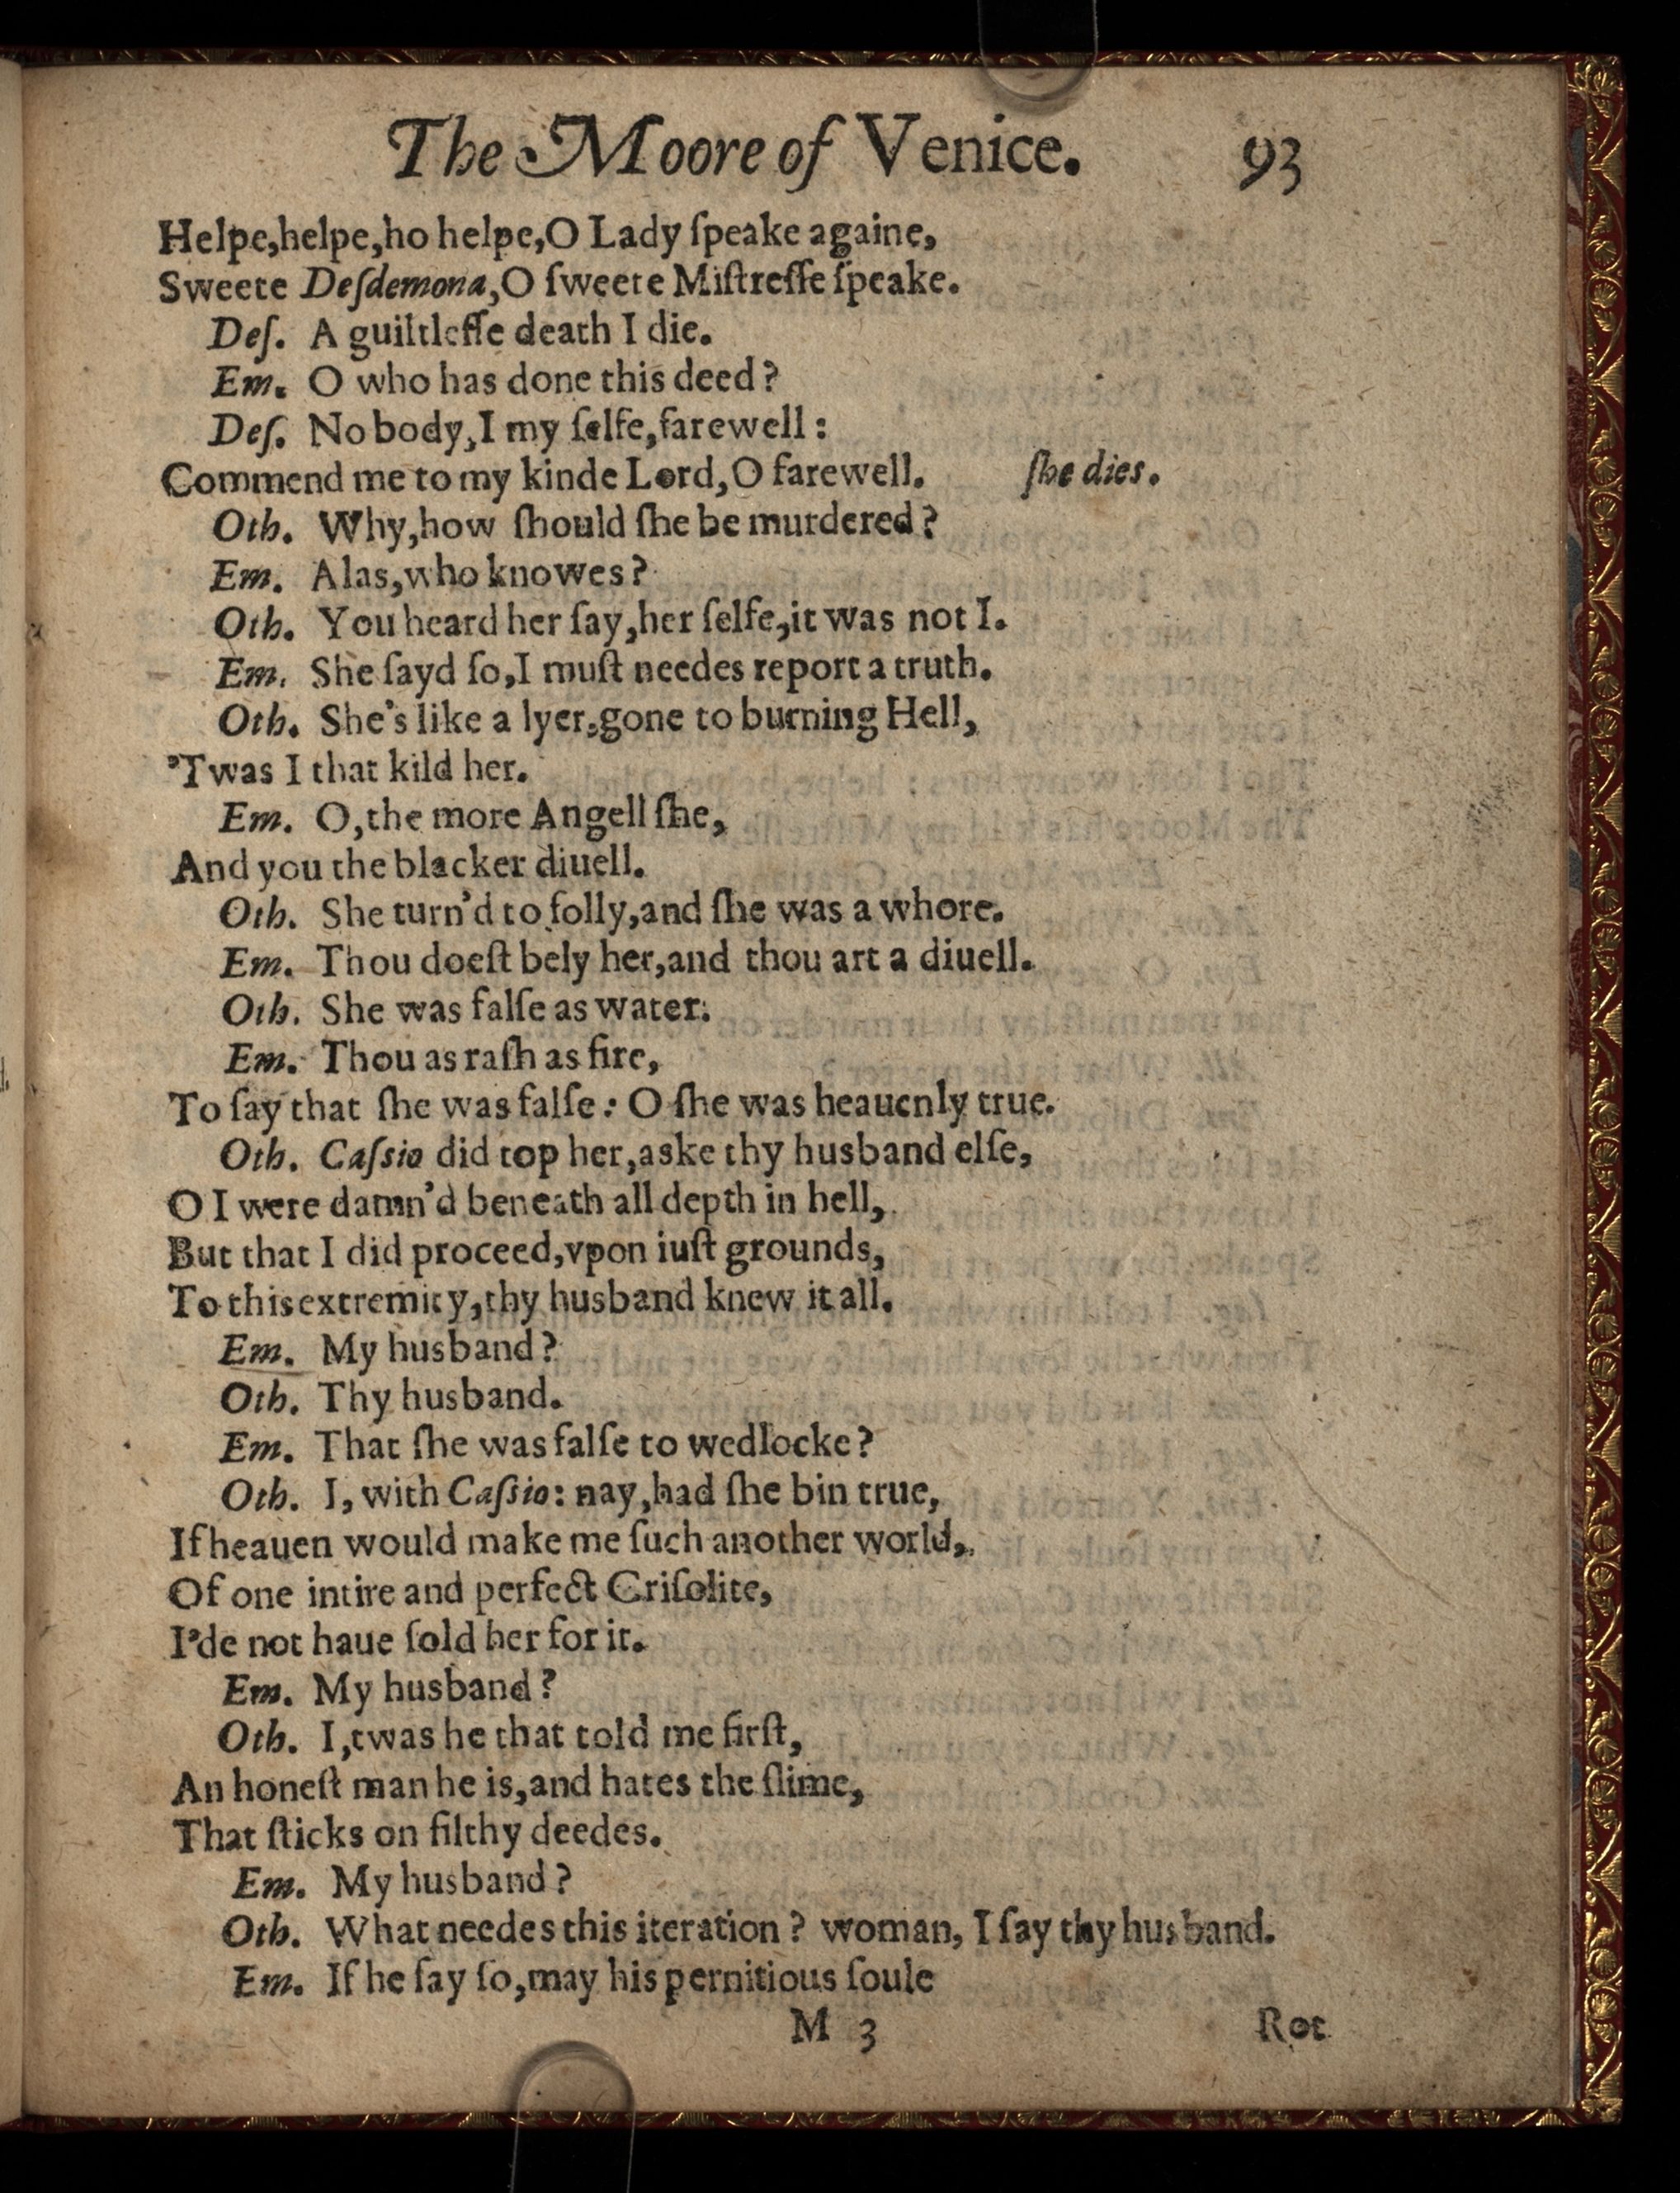 The Moore of Venice. 93
Helpe,helpe,ho helpe,O Lady ſpeake againe,
Sweete Deſdemona,O ſweete Miſtreſſe ſpeake.
Deſ. A guiltleſſe death I die.
Em. O who has done this deed?
Deſ. No body,I my ſelfe,farewell:
Commend me to my kinde Lord,O farewell. ſhe dies.
Oth. Why,how ſhould ſhe be murdered?
Em. Alas,who knowes?
Oth. You heard her ſay,her ſelfe,it was not I.
Em. She ſayd ſo,I muſt needes report a truth.
Oth. She's like a lyer,gone to burning Hell,
'Twas I that kild her.
Em. O,the more Angell ſhe,
And you the blacker diuell.
Oth. She turn'd to folly,and ſhe was a whore.
Em. Thou doeſt bely her,and thou art a diuell.
Oth. She was falſe as water.
Em. Thou as raſh as fire,
To ſay that ſhe was falſe: O ſhe was heauenly true.
Oth. Caſsio did top her,aske thy husband elſe,
O I were damn'd beneath all depth in hell,
But that I did proceed,vpon iuſt grounds,
To this extremity,thy husband knew it all.
Em. My husband?
Oth. Thy husband.
Em. That ſhe was falſe to wedlocke?
Oth. I, with Caſsio: nay,had ſhe bin true,
If heauen would make me ſuch another world,
Of one intire and perfect Criſolite,
I'de not haue ſold her for it.
Em. My husband?
Oth. I,twas he that told me firſt,
An honeſt man he is,and hates the ſlime,
That ſticks on filthy deedes.
Em. My husband?
Oth. What needes this iteration? woman, I ſay thy husband.
Em. If he ſay ſo,may his pernitious ſoule
M 3 Rot